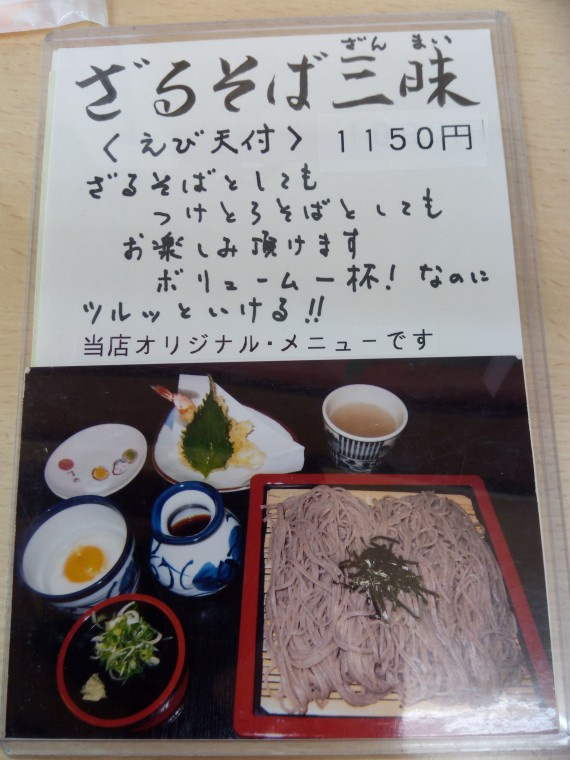 ざん まい
ざるそば三昧
〈えび天付〉 1150円
ざるそばとしても
つけとろそばとしても
お楽しみ頂けます
ボリューム一杯!なのに
ツルッといける!!
当店オリジナル・メニューです